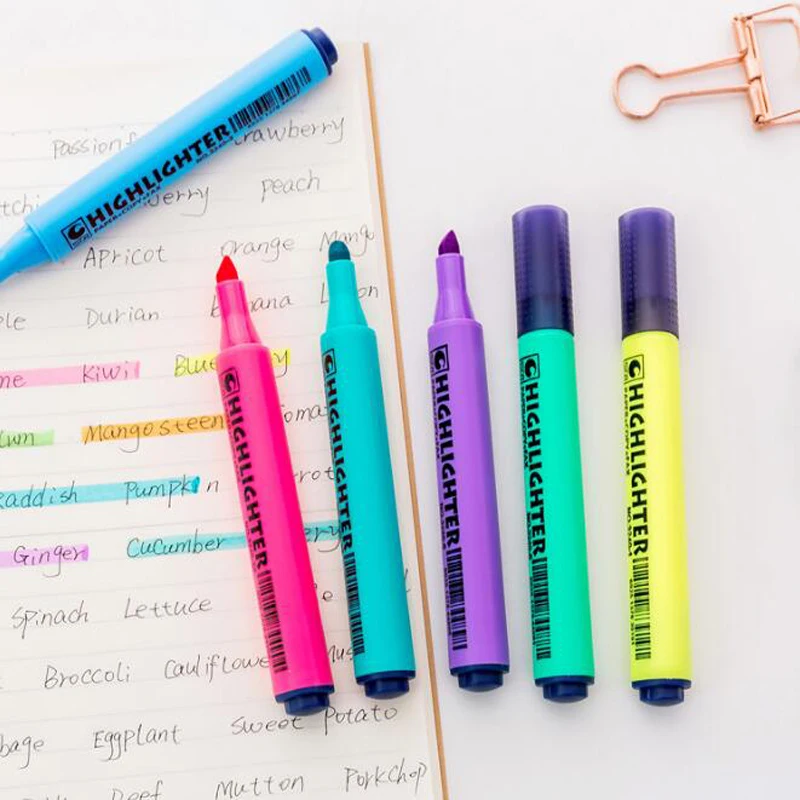 Passionf rawberry
tchi erry peach
Apricot Orange Mango
ple Durian b nana L on
me Kiwi Blue y
lum Mangosteen Toma
raddish Pumpkin rrot
Ginger Cucumber ery
Spinach Lettuce
Broccoli Cauliflowe Mus
bage Eggplant Sweet Potato
Beef Mutton PorkChop
HIGHLIGHTER
HIGHLIGHTER
HIGHLIGHTER
HIGHLIGHTER
HIGHLIGHTER
HIGHLIGHTER